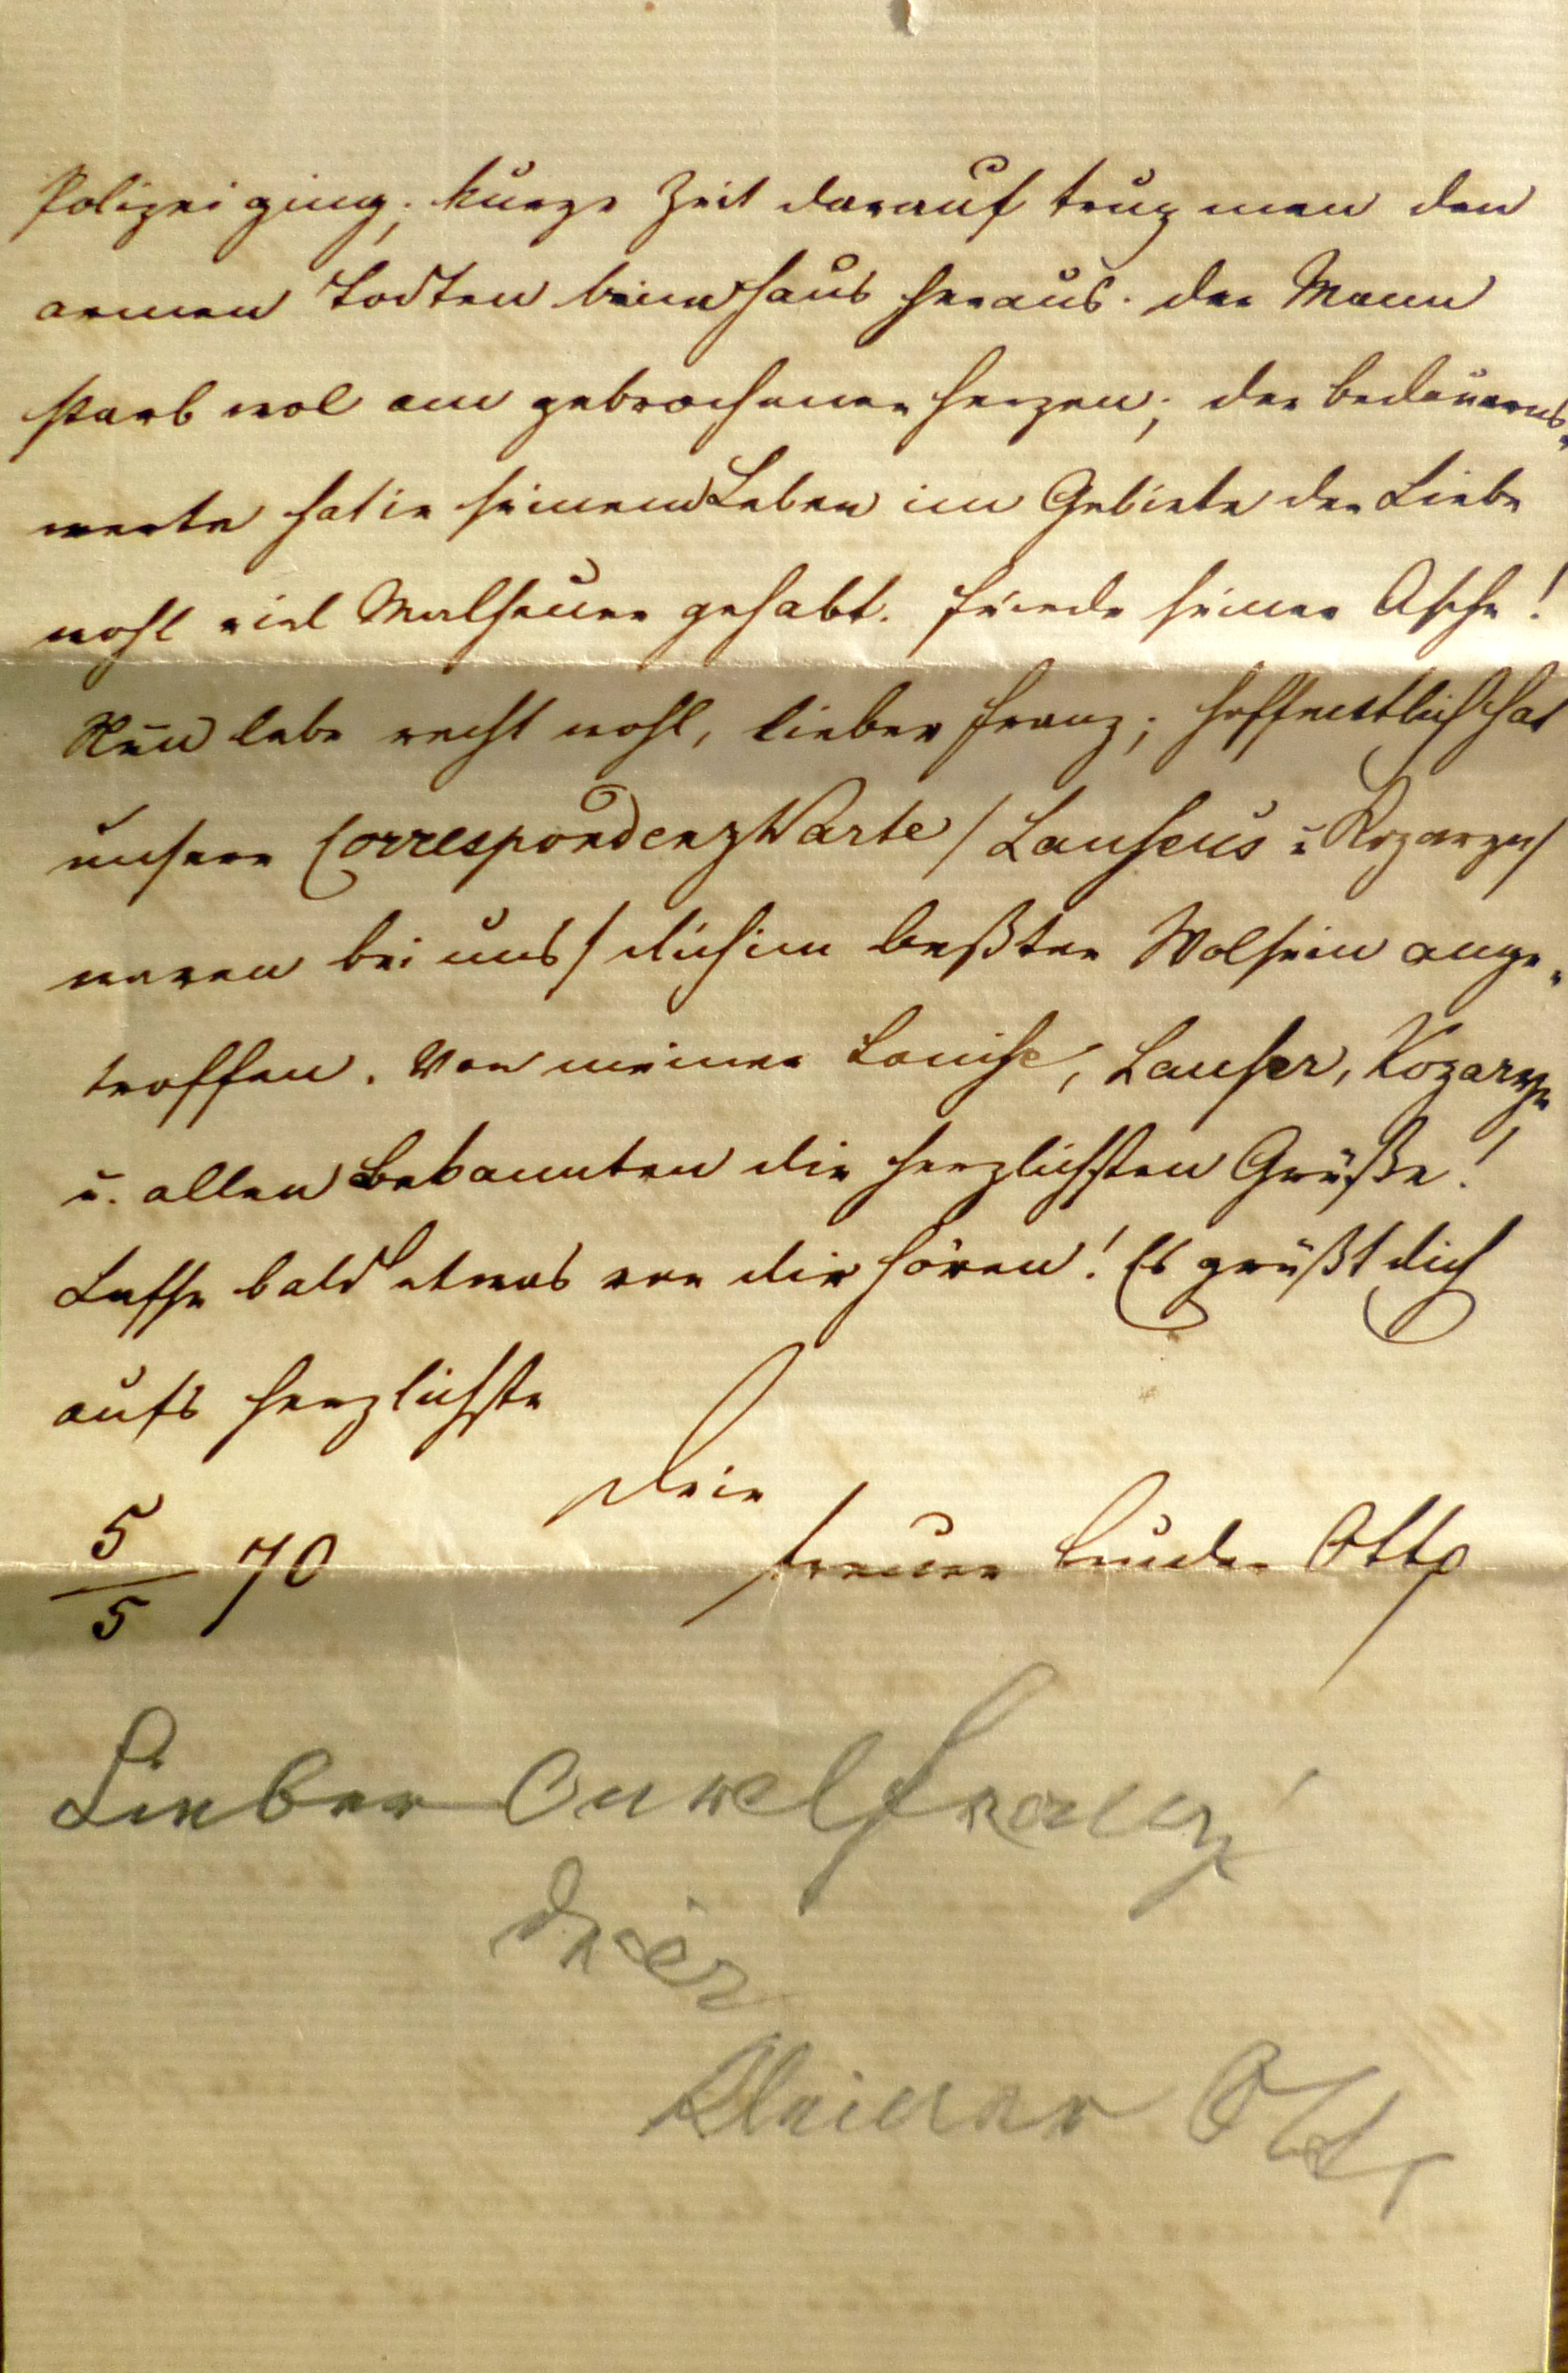 Polizei ging; kurze Zeit darauf trug man den
armen Todten beim Haus heraus. der Mann
starb wol am gebrochenen Herzen; der bedauerns-
werte hat in seinem Leben im Gebiete der Liebe
wohl viel Malheur gehabt. Friede seiner Asche!
Nun lebe recht wohl, lieber Franz; hoffentlich hat
unsere CorrespondenzKarte / u
waren bei uns / dich im beßten Wolsein ange-
troffen. Von meiner Louise, Lauser,
u. allen Bekannten die herzlichsten Grüße!
Lasse bald etwas von dir hören! Es grüßt dich
aufs herzlichste
Dein
5/5 70 treuer Bruder Otto
Lieber Onkel Franz
Dein
Kleiner Otto